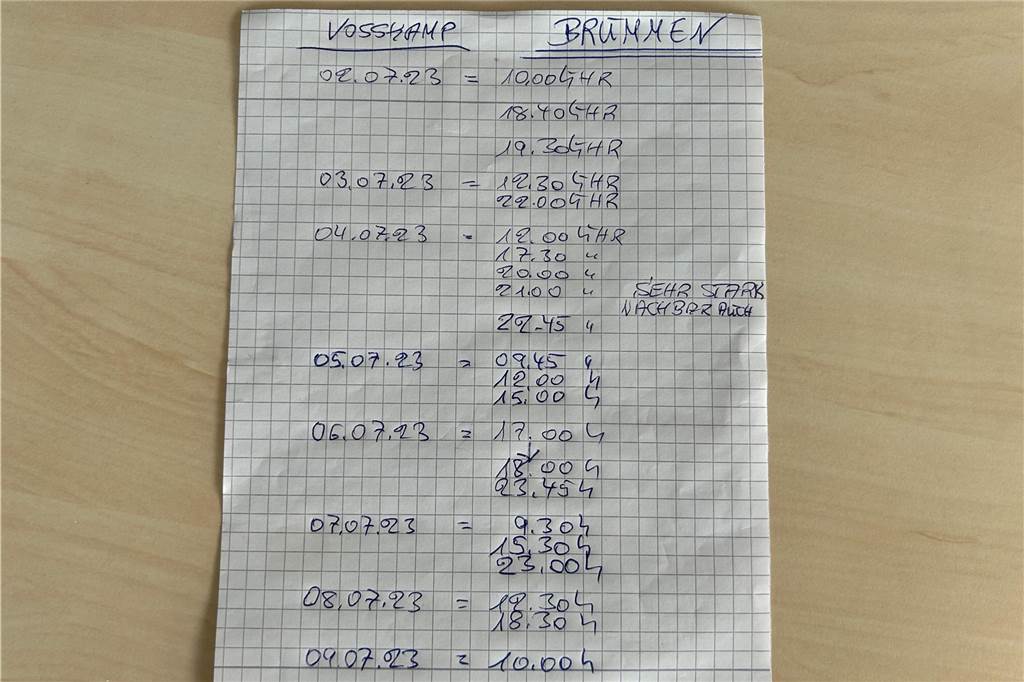 VOSSKAMP BRUMMEN
02.07.23 = 10.00 UHR
18.40 UHR
19.30 UHR
03.07.23 = 12.30 UHR
22.00 UHR
04.07.23 - 12.00 UHR
17.30 "
20.00 "
21.00 " SEHR STARK
NACHBAR AUCH
22.45 "
05.07.23 = 09.45 "
12.00 U
15.00 U
06.07.23 = 17.00 U
18.00 U
23.45 U
07.07.23 = 9.30 U
15.30 U
23.00 U
08.07.23 = 12.30 U
18.30 U
09.07.23 = 10.00 U